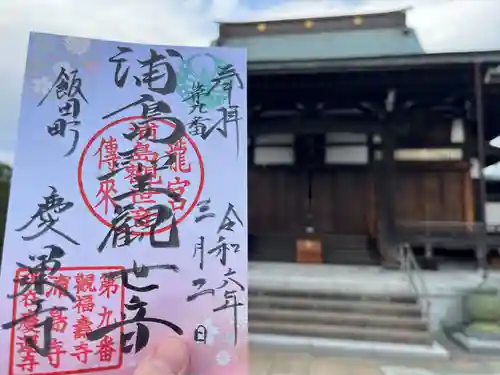 奉拝
第九番
令和六年
三月二日
浦島聖觀世音
飯田町
慶運寺
龍宮
浦島觀世音
傳來
第九番
觀福壽寺
浦島寺
慶運寺